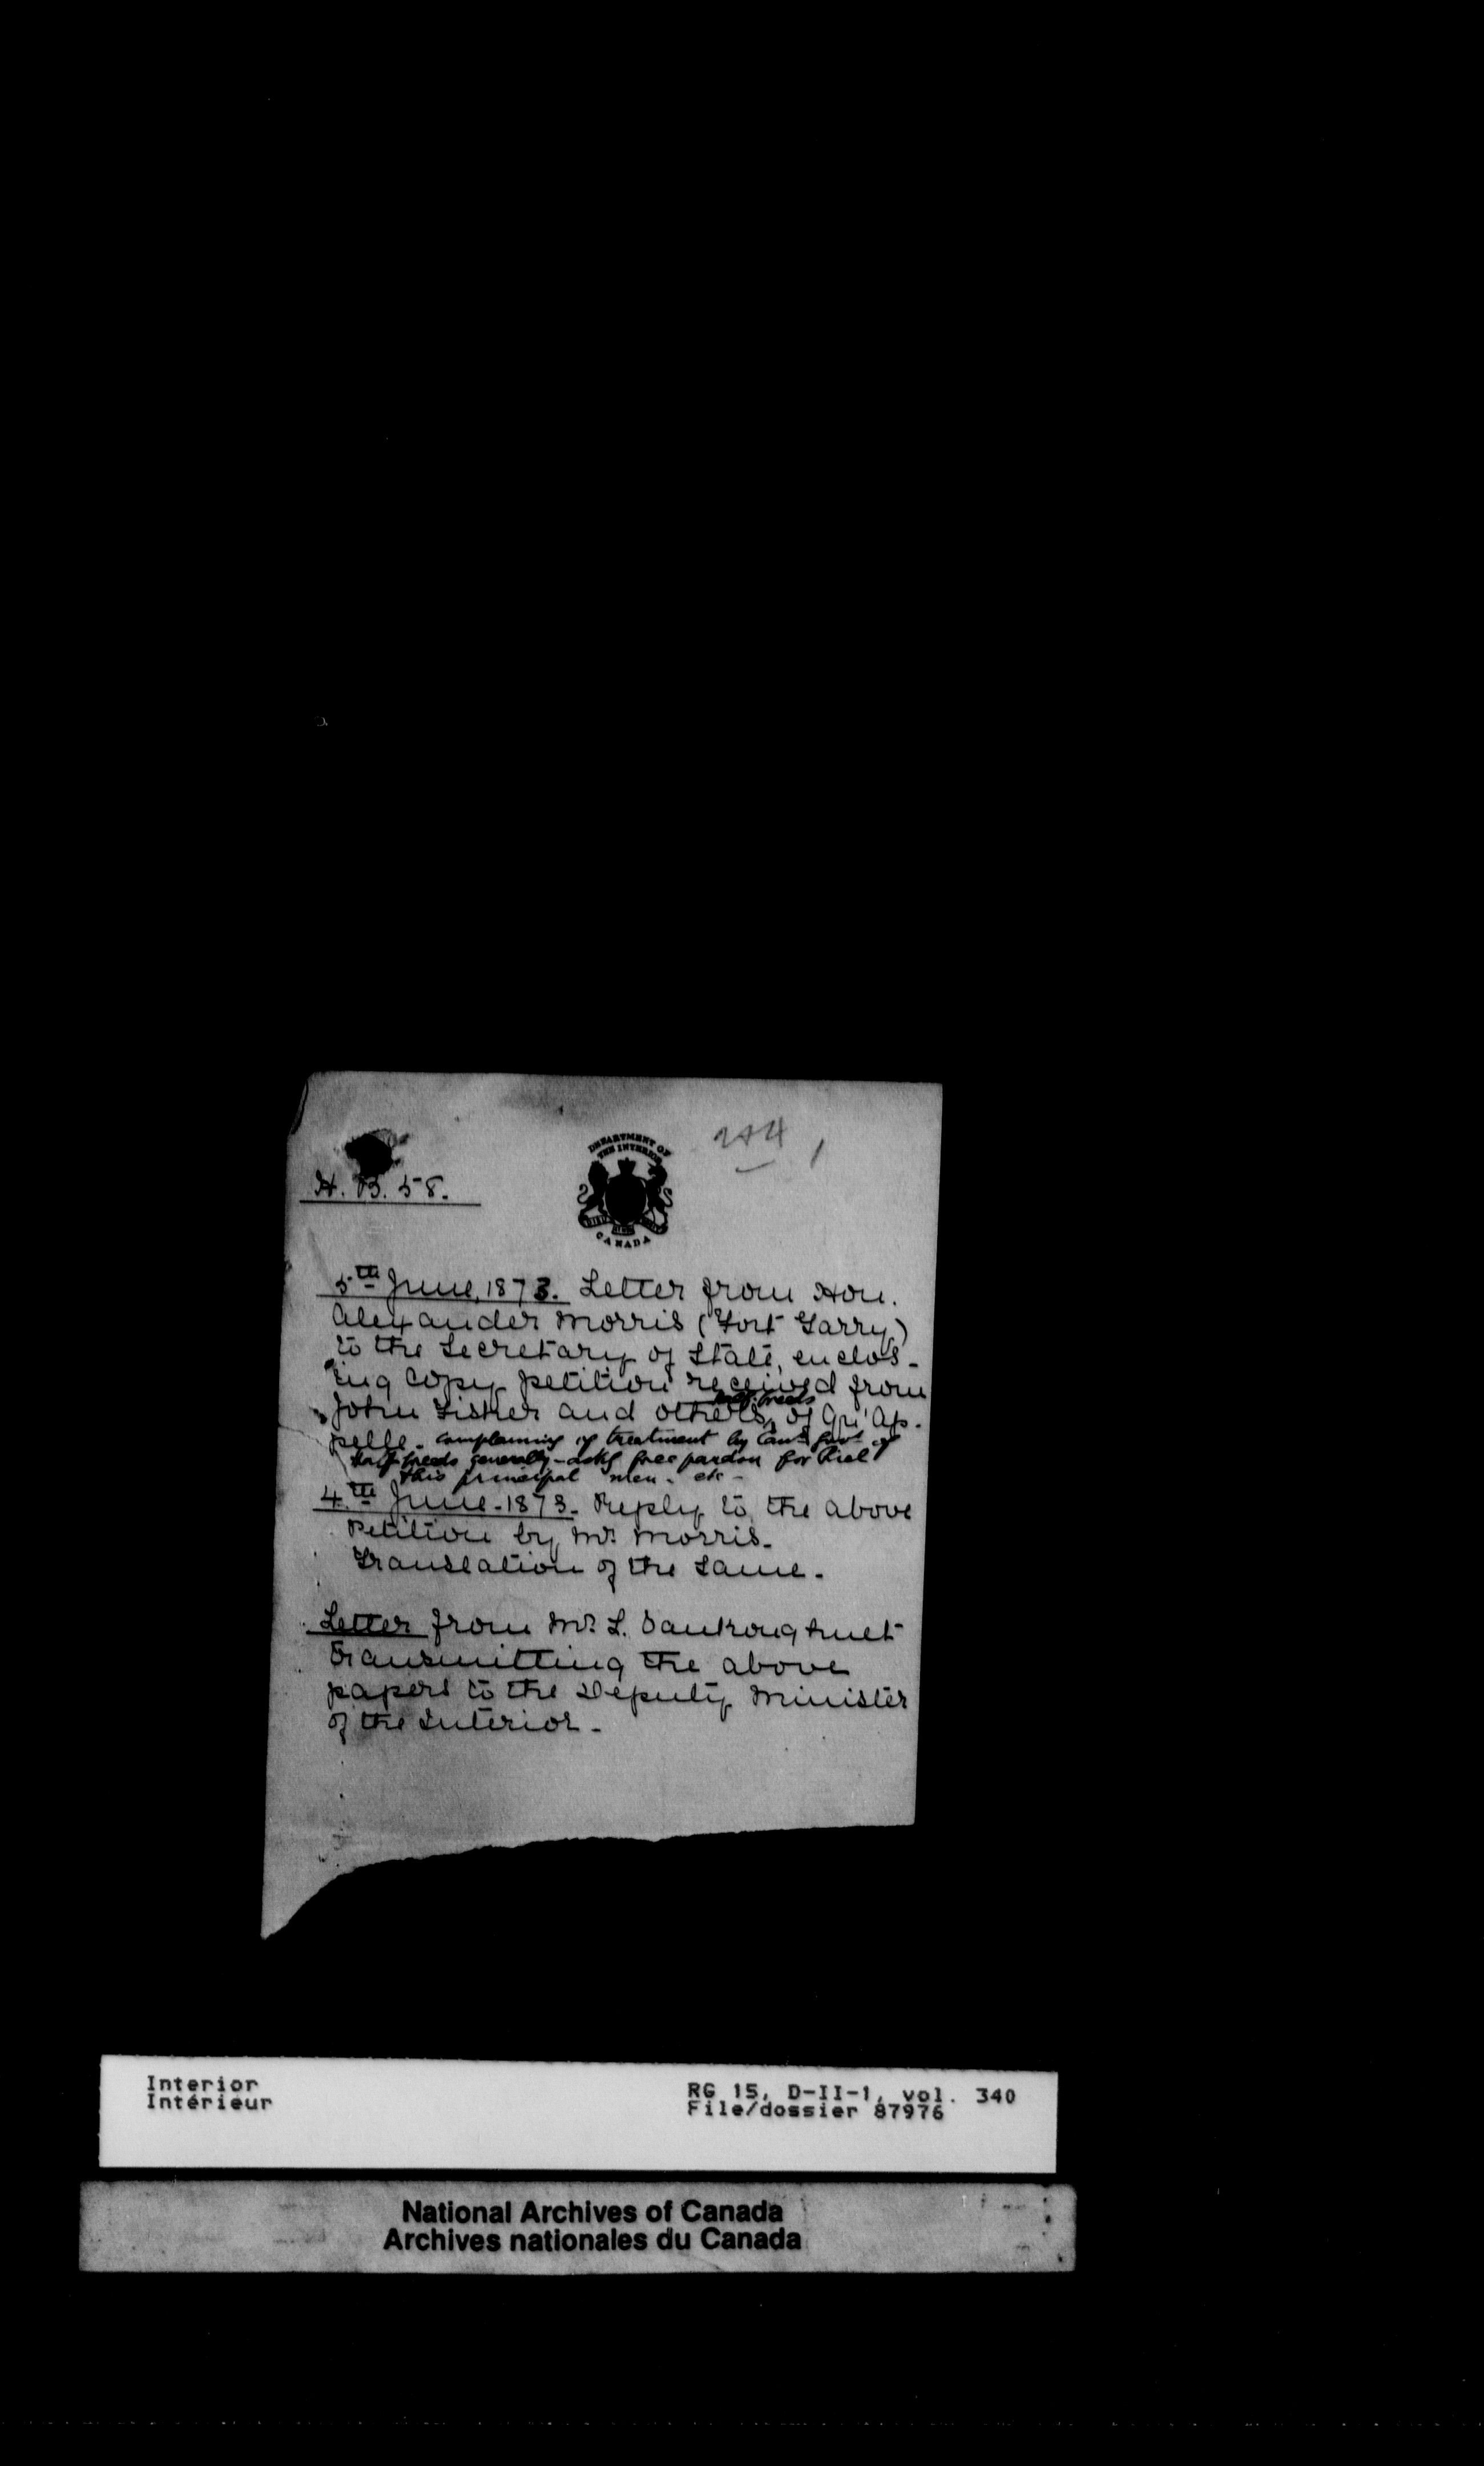 244
H. B. 58.
DEPARTMENT OF
THE INTERIOR
CANADA
5th June, 1873. Letter from Hon.
Alexander Morris (Fort Garry)
to the Secretary of State, enclos-
ing copy petition received from
half-breeds
John Fisher and others, of Qu'Ap-
pelle - complaining of treatment by Can. Govt of
Half-breeds generally - asks free pardon for Riel
& his principal men - etc -
4th June - 1873. Reply to the above
Petition by Mr. Morris.
Translation of the same.
Letter from Mr. L. Vankoughnet
transmitting the above
papers to the Deputy Minister
of the Interior.
Interior
Intérieur
RG 15, D-II-1, vol. 340
File/dossier 87976
National Archives of Canada
Archives nationales du Canada